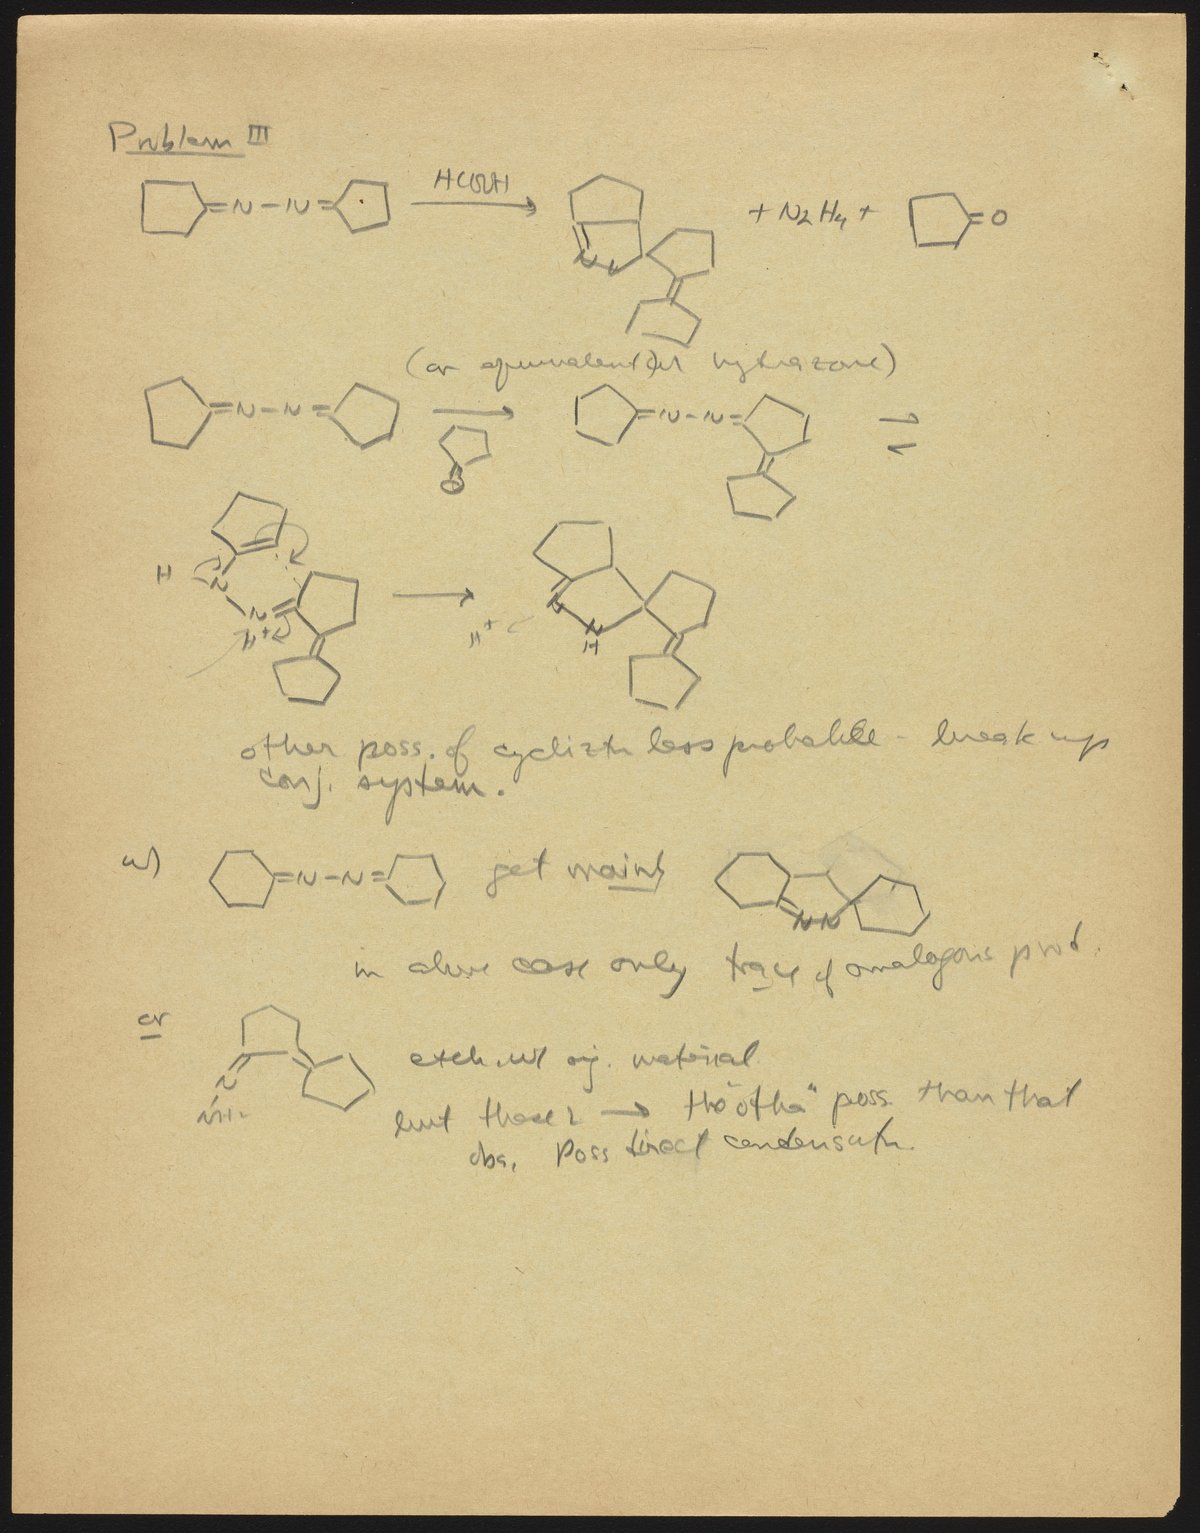 Problem III
=N-N= HCOOH N N + N2H4 + =O
(or equivalent hydrazone)
=N-N= O =N-N=
H N N H+ H+ N N H
other poss. of cycliztn less probable - break up
conj. system.
w/ =N-N= get mainly N N
in above case only trace of analogous prod.
or
N NH2 exch. w/ orig. material
but these 2 → the "other" poss. than that
obs. Poss direct condensatn.